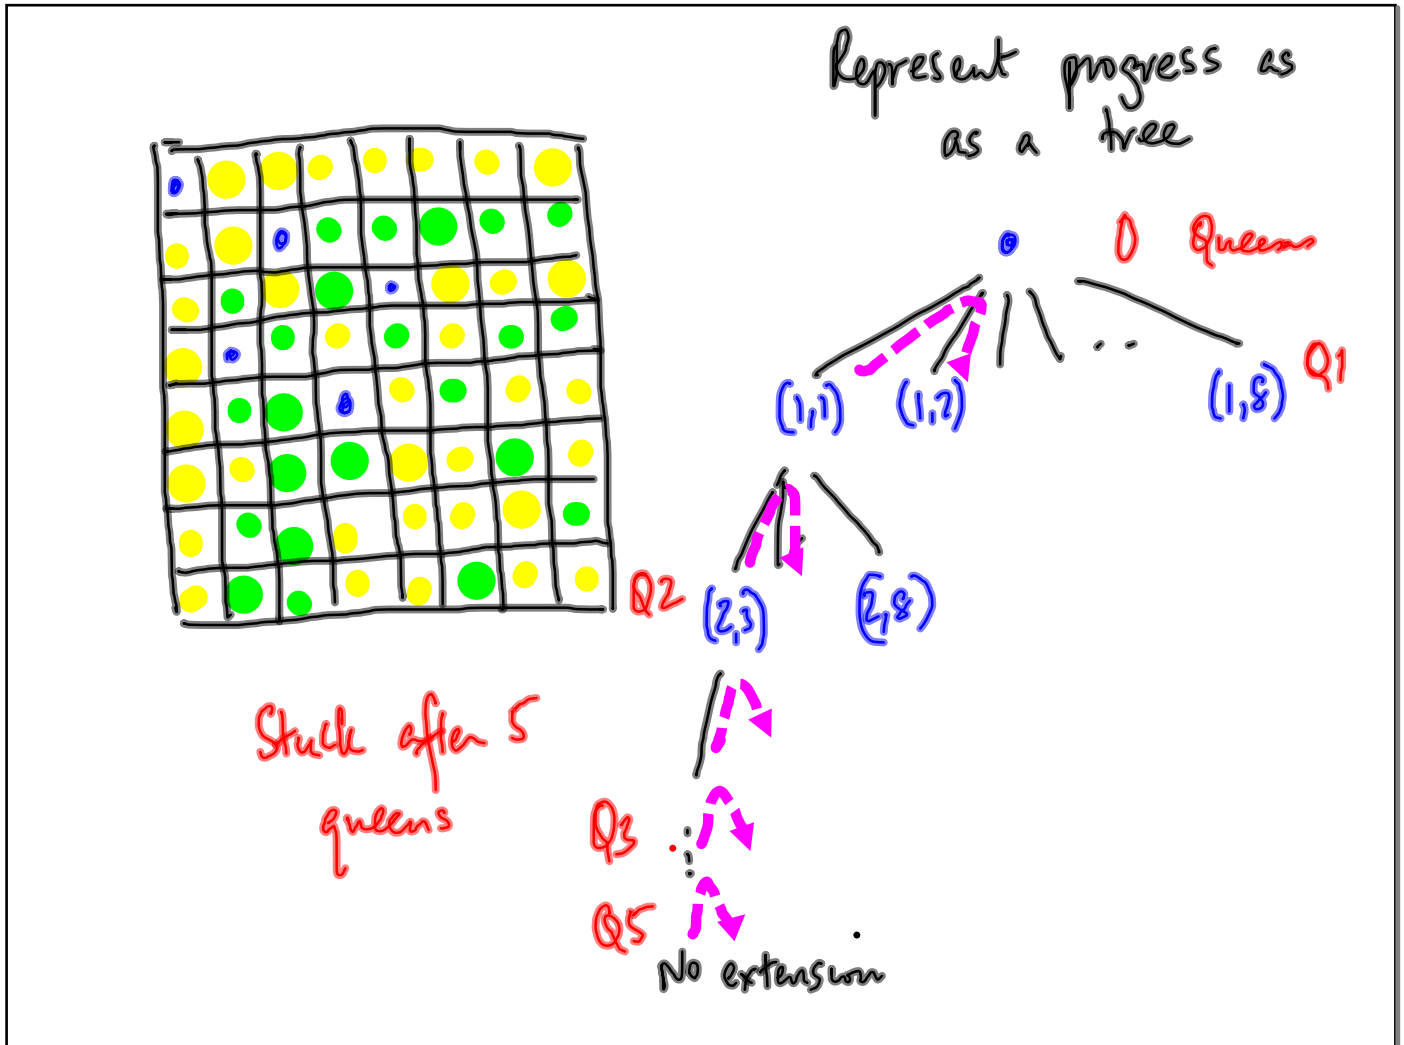 Represent progress as
as a tree
0 Queens
(1,1) (1,2) .. (1,8) Q1
Q2 (2,3) (2,8)
Stuck after 5
queens
Q3
Q5
No extension